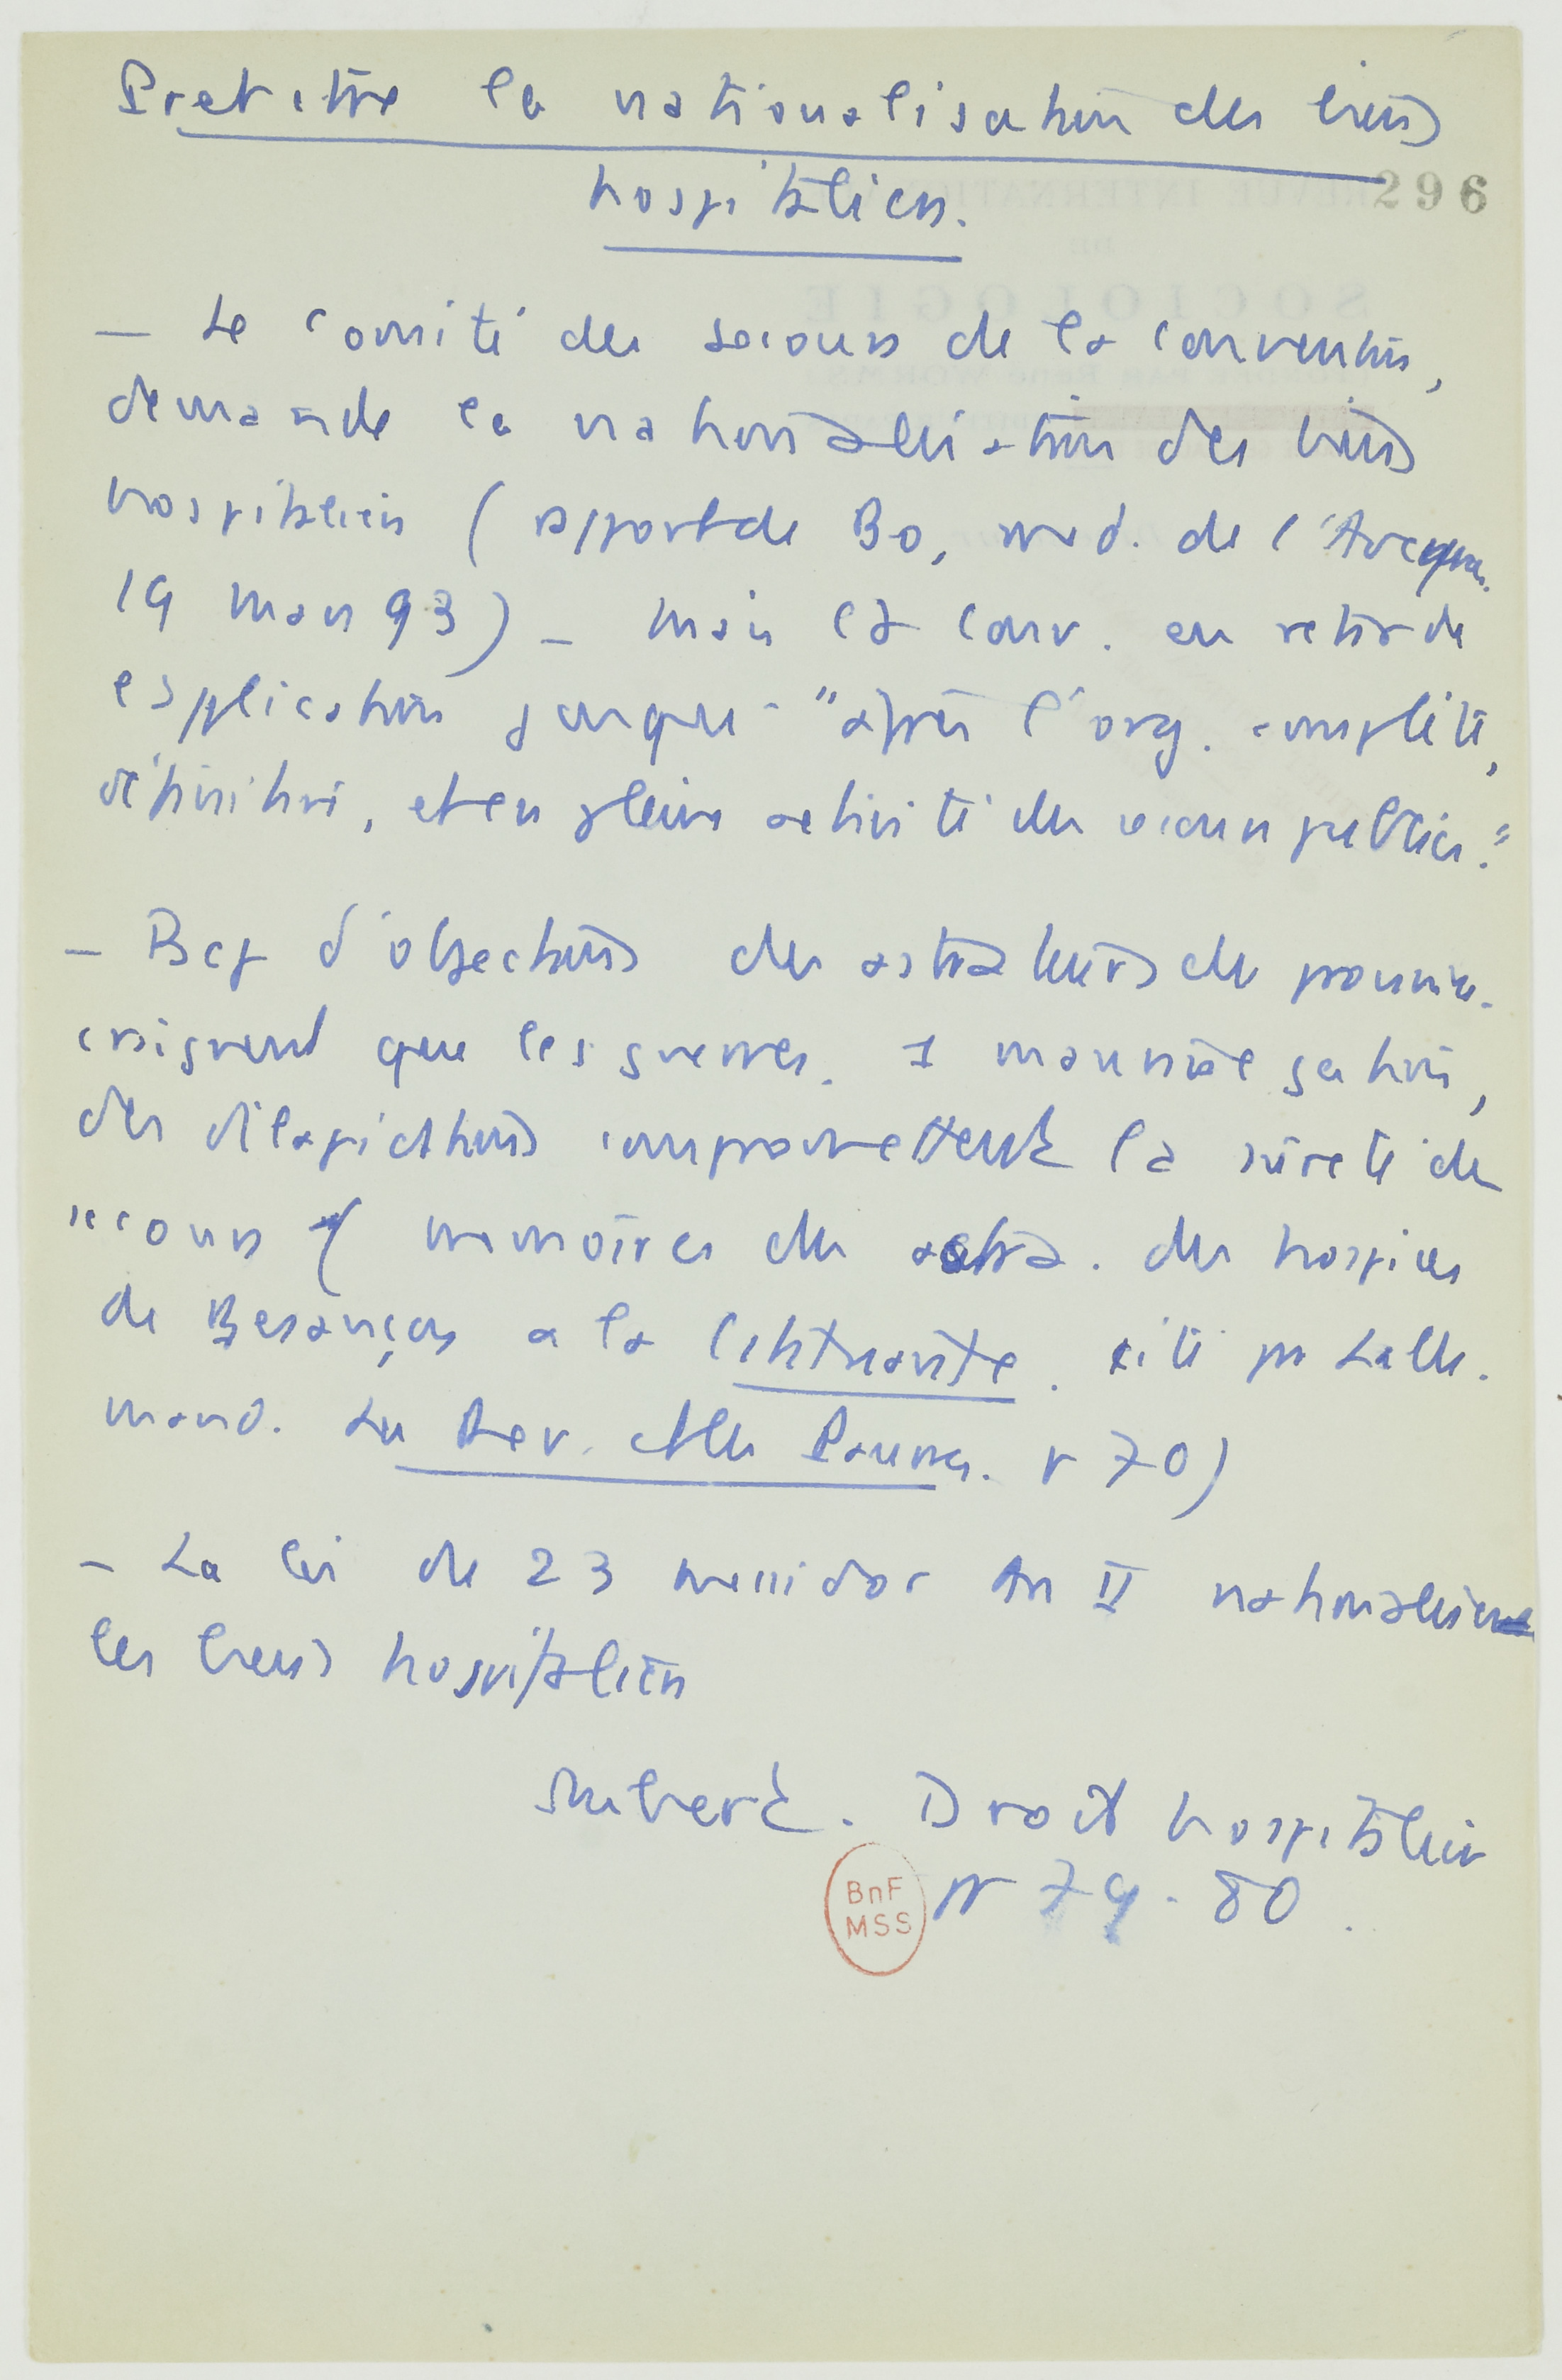 Pret contre la nationalisation des biens
hospitaliers.
296
— Le Comité des secours de la Convention,
demande la nationalisation des biens
hospitaliers (rapport de Bo, méd. de l'Aveyron.
19 mars 93) – Mais la Conv. en retarde
l'application jusque "après l'org. complète,
définitive, et en pleine activité des secours publics."
– Bcp d'objections des administrateurs des pauvres.
craignent que les guerres. 1 mauvaise gestion,
des dilapidations compromettent la sûreté des
secours (mémoires des adm. des hospices
de Besançon à la Constituante. cité par Lalle-
mand. La Rev. et les Pauvres. p 70)
– La loi de 23 messidor An II nationalise
les biens hospitaliers
Imbert. Droit hospitalier
p 79-80.
BnF
MSS